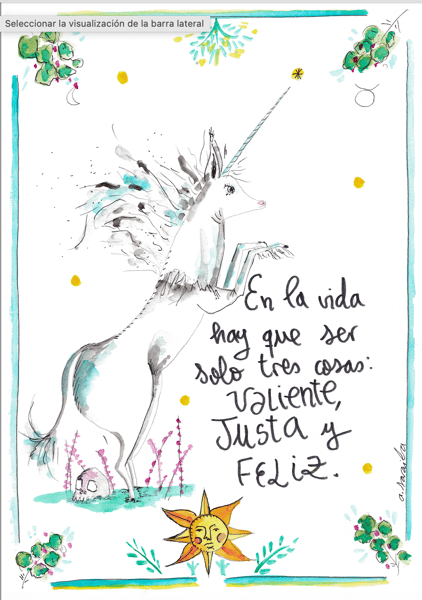 Seleccionar la visualización de la barra lateral
En la vida
hay que ser
solo tres cosas:
Valiente,
Justa y
FELIZ.